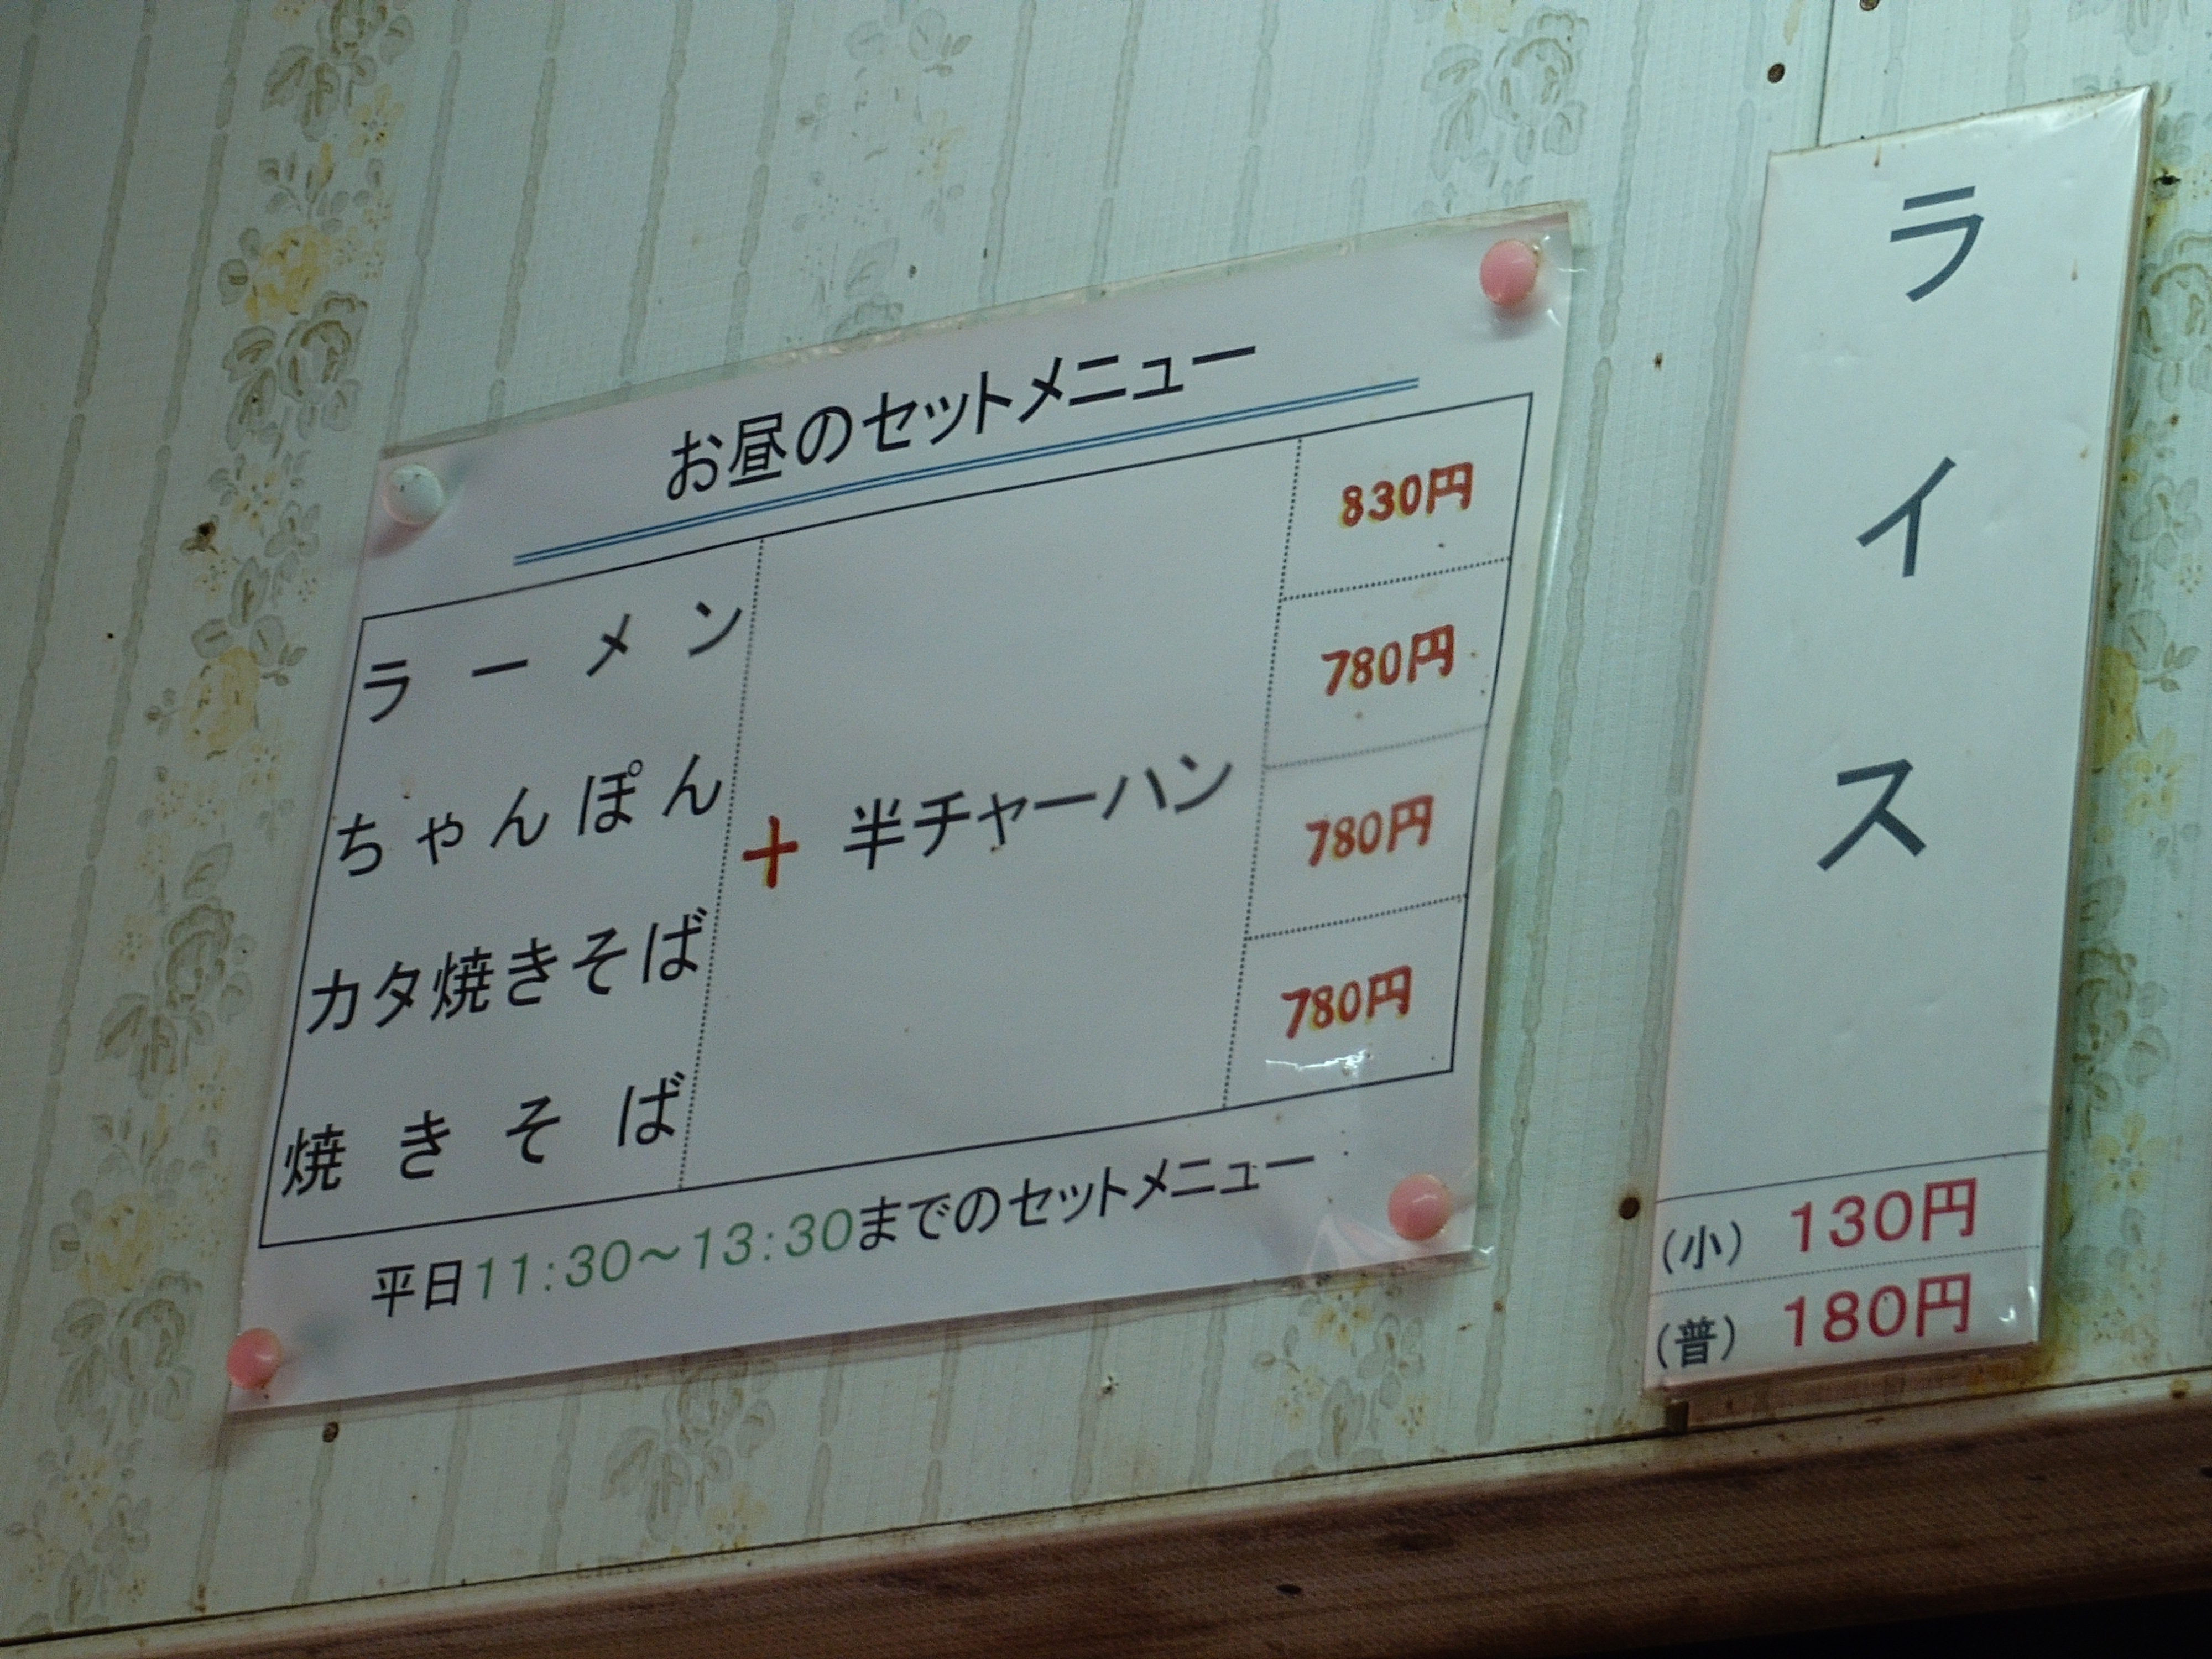 お昼のセットメニュー
ラーメン
ちゃんぽん
カタ焼きそば
焼きそば
+ 半チャーハン
830円
780円
780円
780円
平日11:30～13:30までのセットメニュー
ライス
(小) 130円
(普) 180円